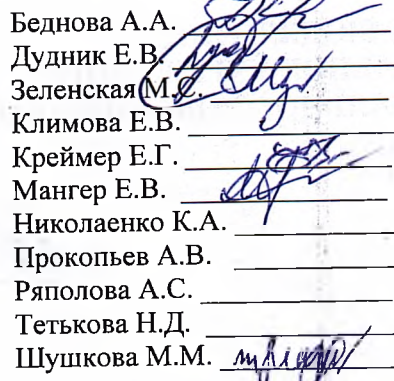 Беднова А.А.
Дудник Е.В.
Зеленская М.С.
Климова Е.В.
Креймер Е.Г.
Мангер Е.В.
Николаенко К.А.
Прокопьев А.В.
Ряполова А.С.
Тетькова Н.Д.
Шушкова М.М.